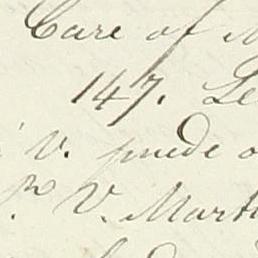 Care of M
147. Le
V. puede o
V. Mart